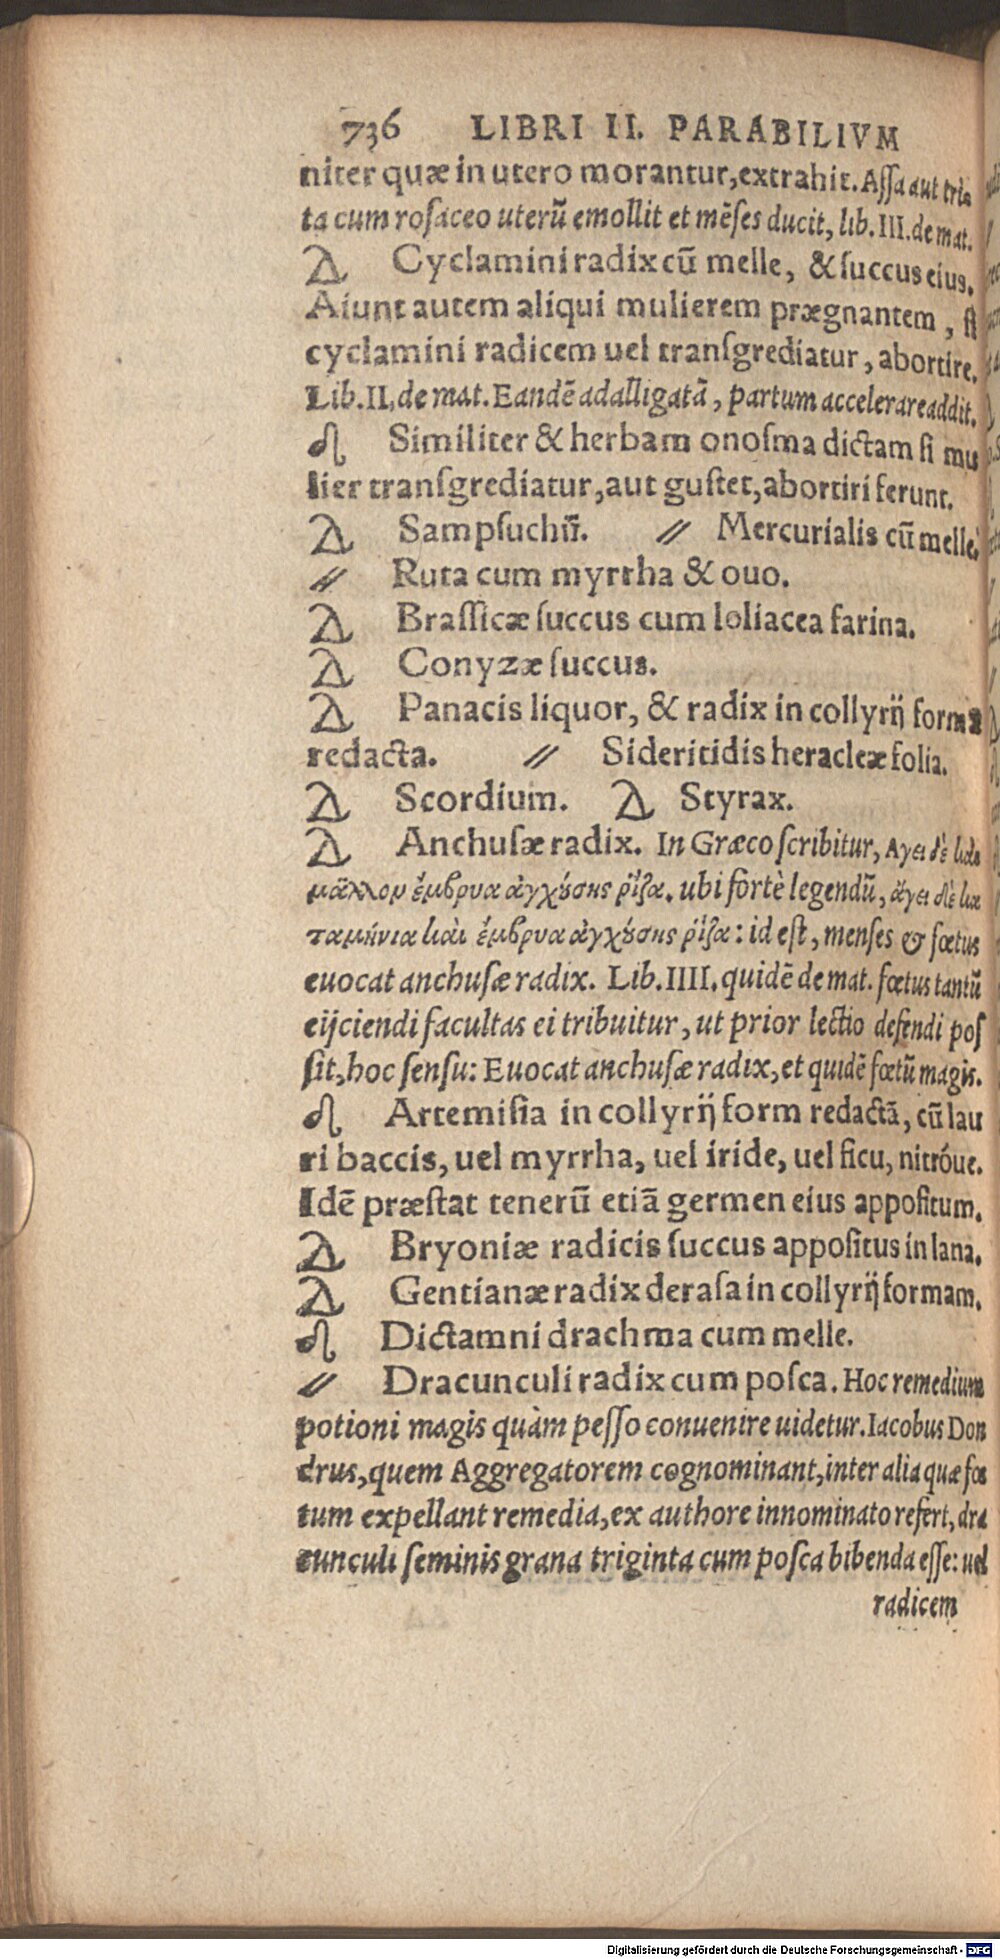 736 LIBRI II. PARABILIVM
niter quæ in utero morantur, extrahit. Assa aut trita
ta cum rosaceo uterũ emollit et mẽses ducit, lib. III. de mat.
Cyclamini radix cũ melle, & succus eius.
Aiunt autem aliqui mulierem prægnantem, si
cyclamini radicem uel transgrediatur, abortire.
Lib. II, de mat. Eandẽ adalligatã, partum accelerare addit.
Similiter & herbam onosma dictam si mu
lier transgrediatur, aut gustet, abortiri ferunt.
Sampsuchũ. // Mercurialis cũ melle.
// Ruta cum myrrha & ouo.
Brassicæ succus cum loliacea farina.
Conyzæ succus.
Panacis liquor, & radix in collyrij forma
redacta. // Sideritidis heracleæ folia.
Scordium. Styrax.
Anchusæ radix. In Græco scribitur, Αγει δὲ
μᾶλλον ἔμβρυα ἀγχούσης ῥίζα. ubi fortè legendũ, ἄγει δὲ κα
ταμήνια καὶ ἔμβρυα ἀγχούσης ῥίζα: id est, menses & fœtus
euocat anchusæ radix. Lib. IIII. quidẽ de mat. fœtus tantũ
eijciendi facultas ei tribuitur, ut prior lectio defendi pos
sit, hoc sensu: Euocat anchusæ radix, et quidẽ fœtũ magis.
Artemisia in collyrij form redactã, cũ lau
ri baccis, uel myrrha, uel iride, uel ficu, nitróue.
Idẽ præstat tenerũ etiã germen eius appositum.
Bryoniæ radicis succus appositus in lana.
Gentianæ radix derasa in collyrij formam.
Dictamni drachma cum melle.
// Dracunculi radix cum posca. Hoc remedium
potioni magis quàm pesso conuenire uidetur. Iacobus Don
drus, quem Aggregatorem cognominant, inter alia quæ fœ
tum expellant remedia, ex authore innominato refert, dra
cunculi seminis grana triginta cum posca bibenda esse: uel
radicem
Digitalisierung gefördert durch die Deutsche Forschungsgemeinschaft - DFG